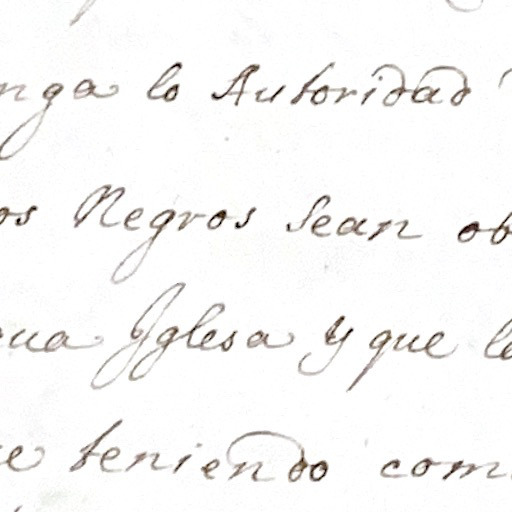 nga lo Autoridad
os Negros sean ob
gua Yglesa y que le
e teniendo com